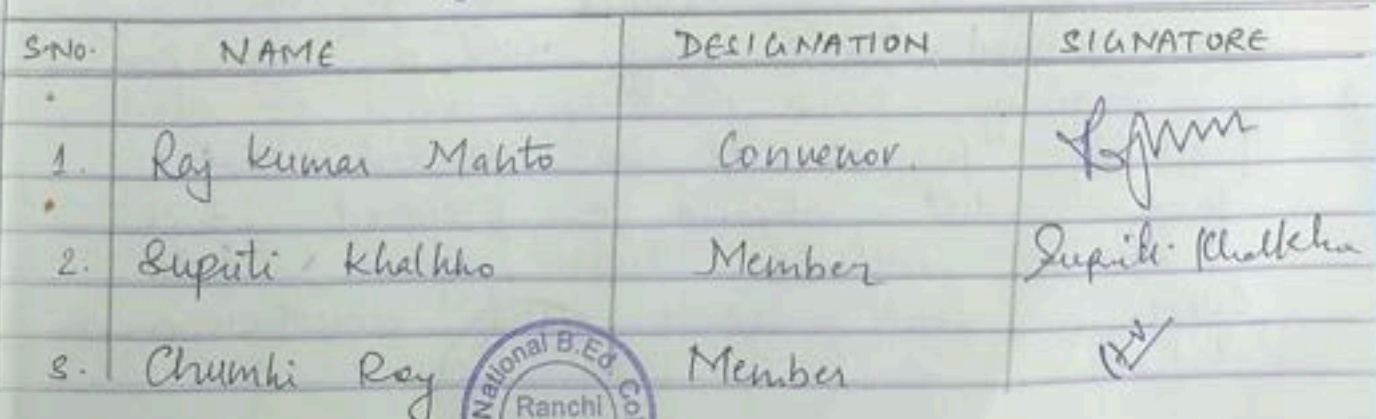 S.No. NAME DESIGNATION SIGNATORE
1. Raj Kumar Mahto Convenor.
2. Supriti Khalkho Member Supriti Khalkho
3. Chumki Roy Member
National B.Ed. Co
Ranchi